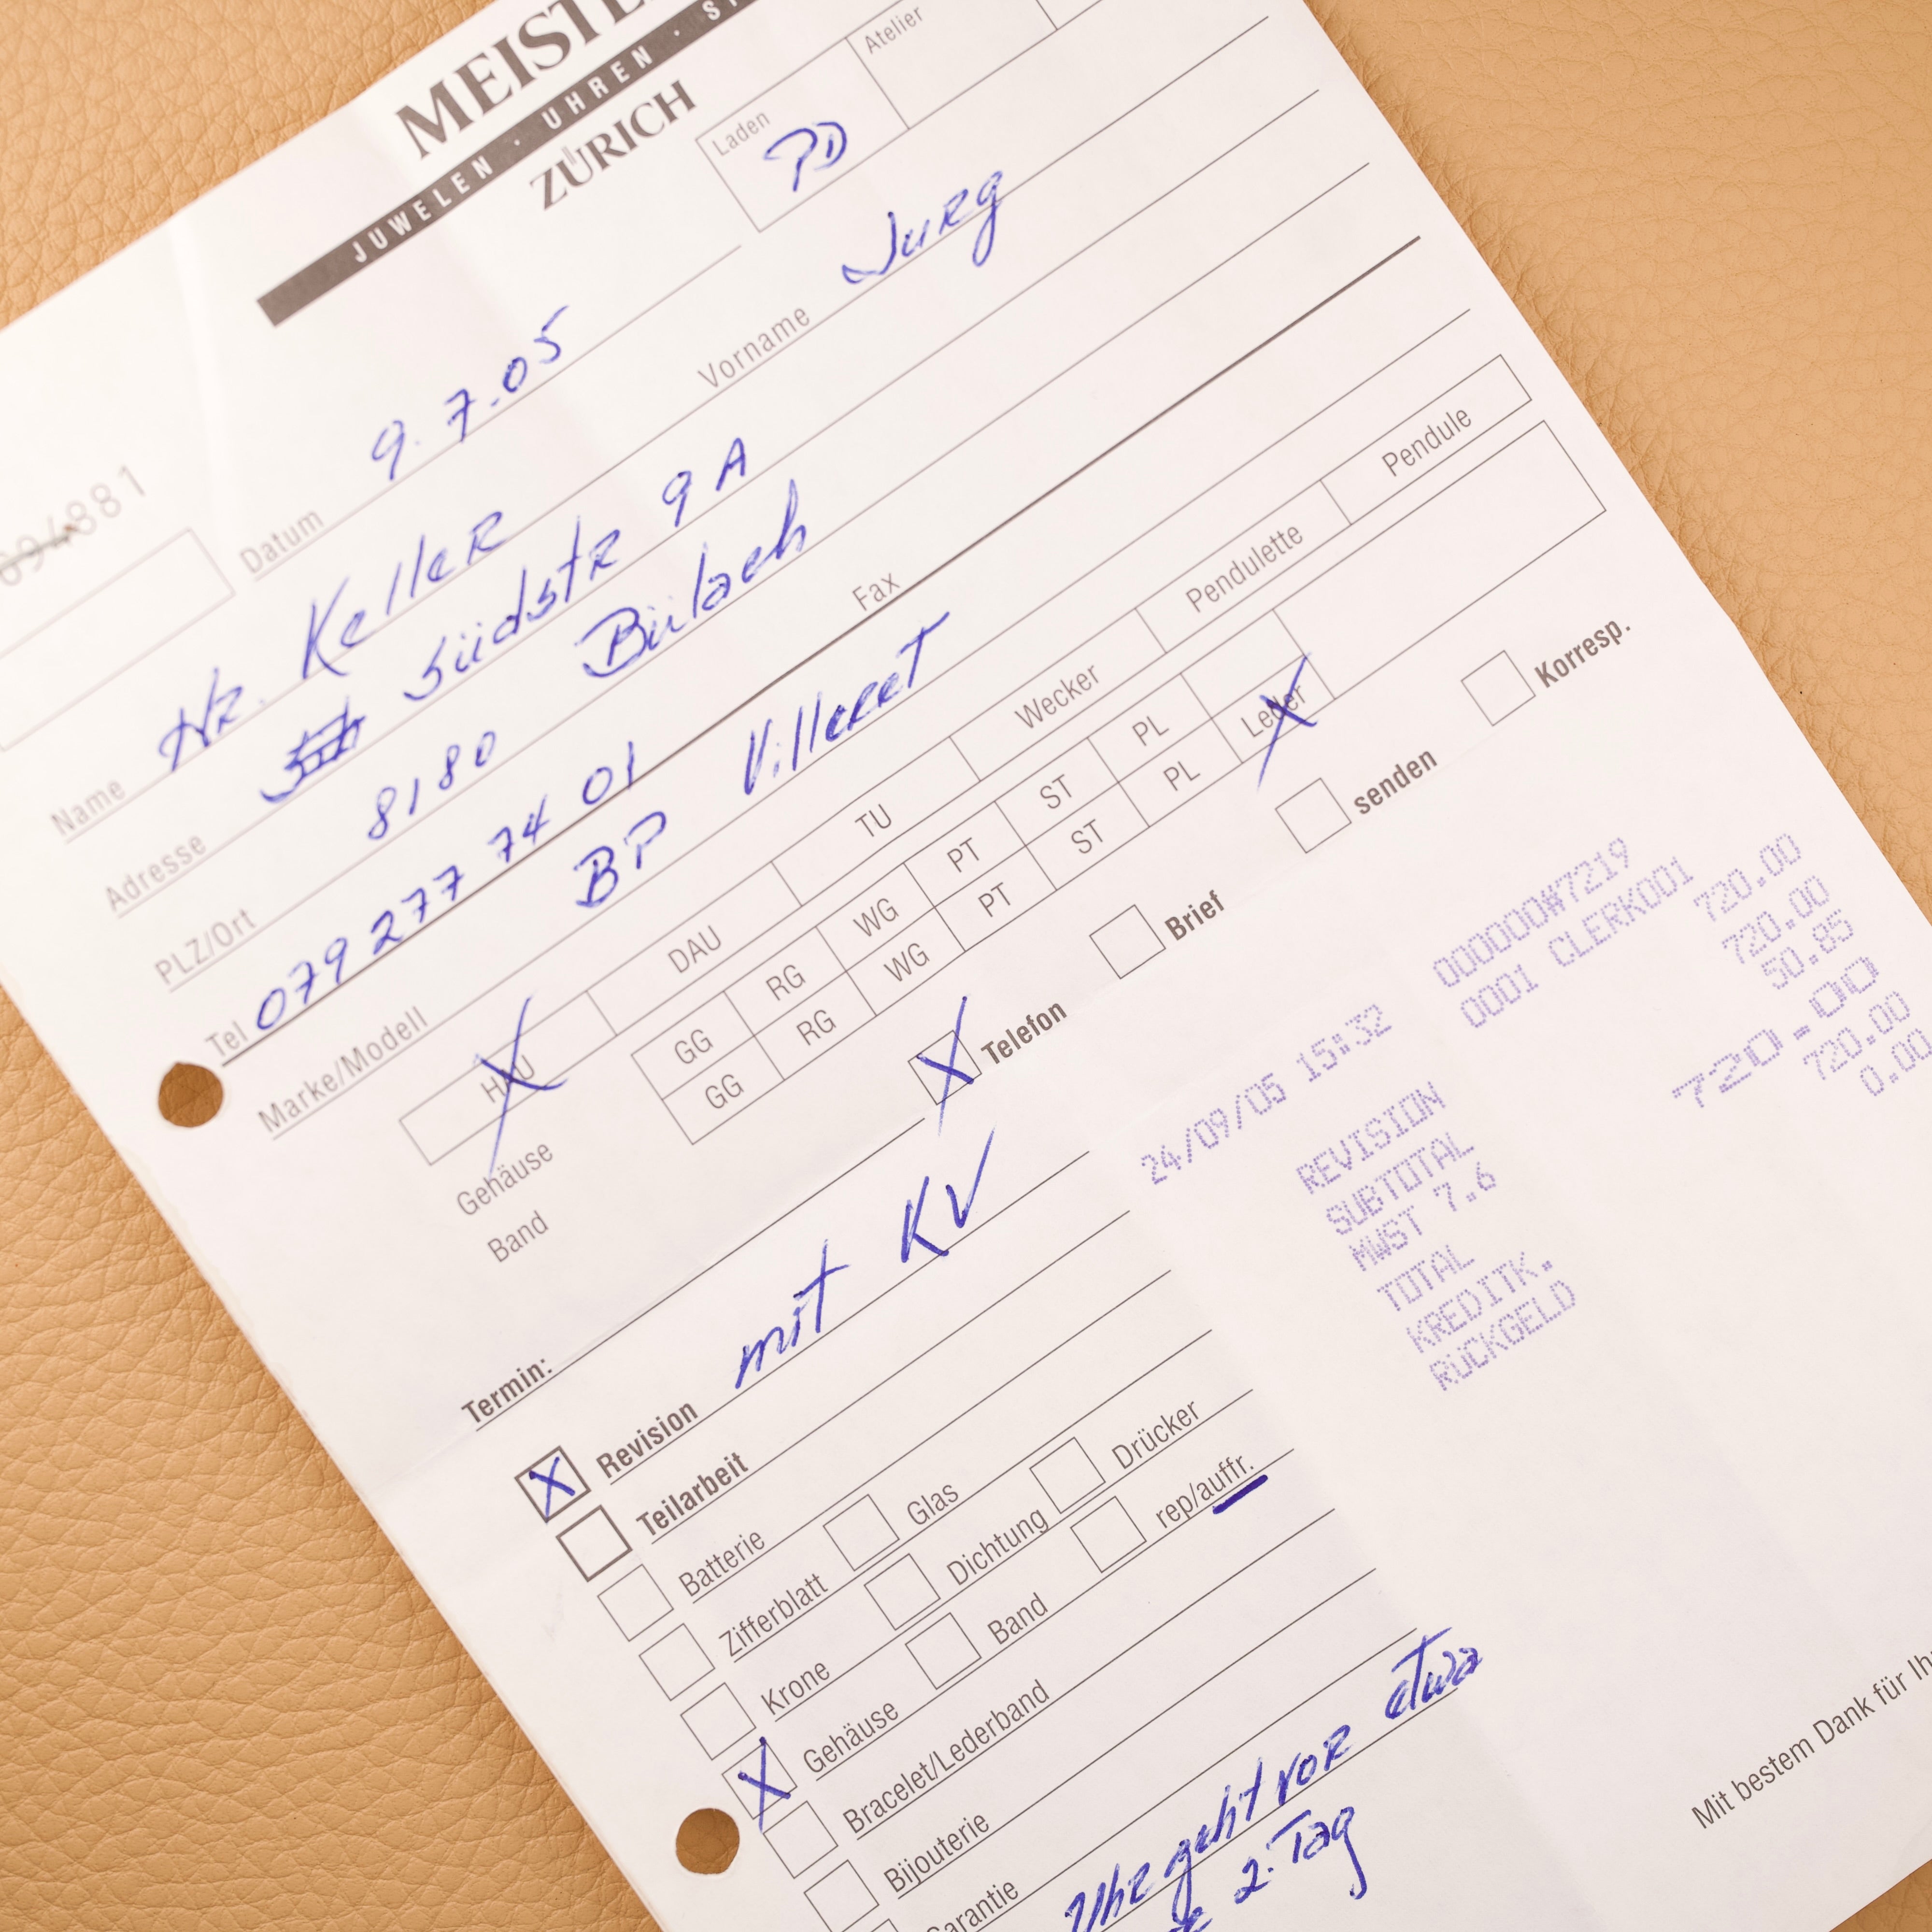 JUWELEN · UHREN ·
ZÜRICH
Laden PD Atelier
094881
Datum 9.7.05
Name Hr. Keller Vorname Jurg
Adresse Südstr 9A
PLZ/Ort 8180 Bülach
Tel 079 277 74 01 Fax
Marke/Modell BP Villeret
HAU DAU TU Wecker Pendulette Pendule
Gehäuse GG RG WG PT ST PL
Band GG RG WG PT ST PL Leder
Telefon Brief senden Korresp.
Termin:
Revision mit KV
Teilarbeit
Batterie Glas Drücker
Zifferblatt Dichtung rep/auffr.
Krone Band
Gehäuse
Bracelet/Lederband
Bijouterie
Garantie
Uhr geht vor etwa
2. Tag
000000#7219
24/09/05 15:32 0001 CLERK001
REVISION 720.00
SUBTOTAL 720.00
MWST 7.6 50.85
TOTAL 720.00
KREDITK. 720.00
RÜCKGELD 0.00
Mit bestem Dank für